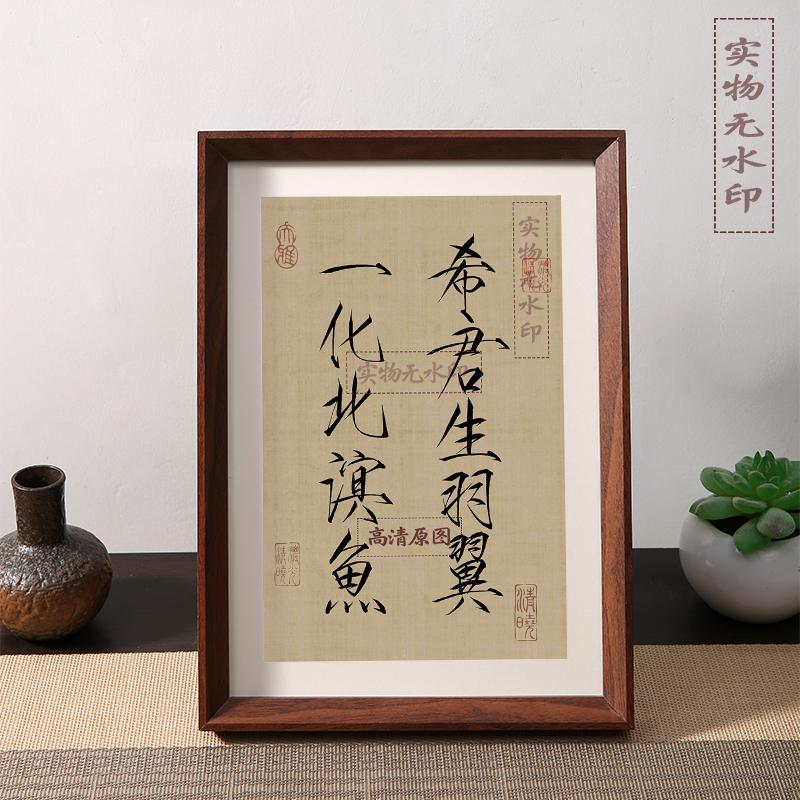 实物无水印
实物无水印
希君生羽翼
一化北溟魚
实物无水印
高清原图
清曉